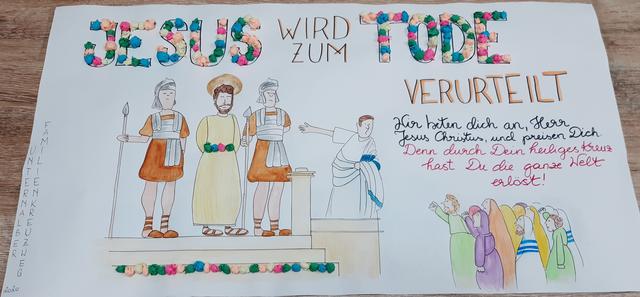 JESUS WIRD ZUM TODE
VERURTEILT
Wir beten dich an, Herr
Jesus Christus, und preisen Dich.
Denn durch Dein heiliges Kreuz
hast Du die ganze Welt
erlöst!
UNTERNALBER
FAMILIENKREUZWEG
2020